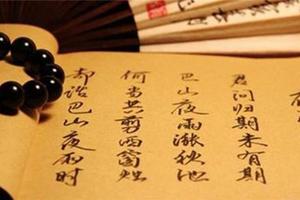 君问归期未有期
巴山夜雨涨秋池
何当共剪西窗烛
却话巴山夜雨时